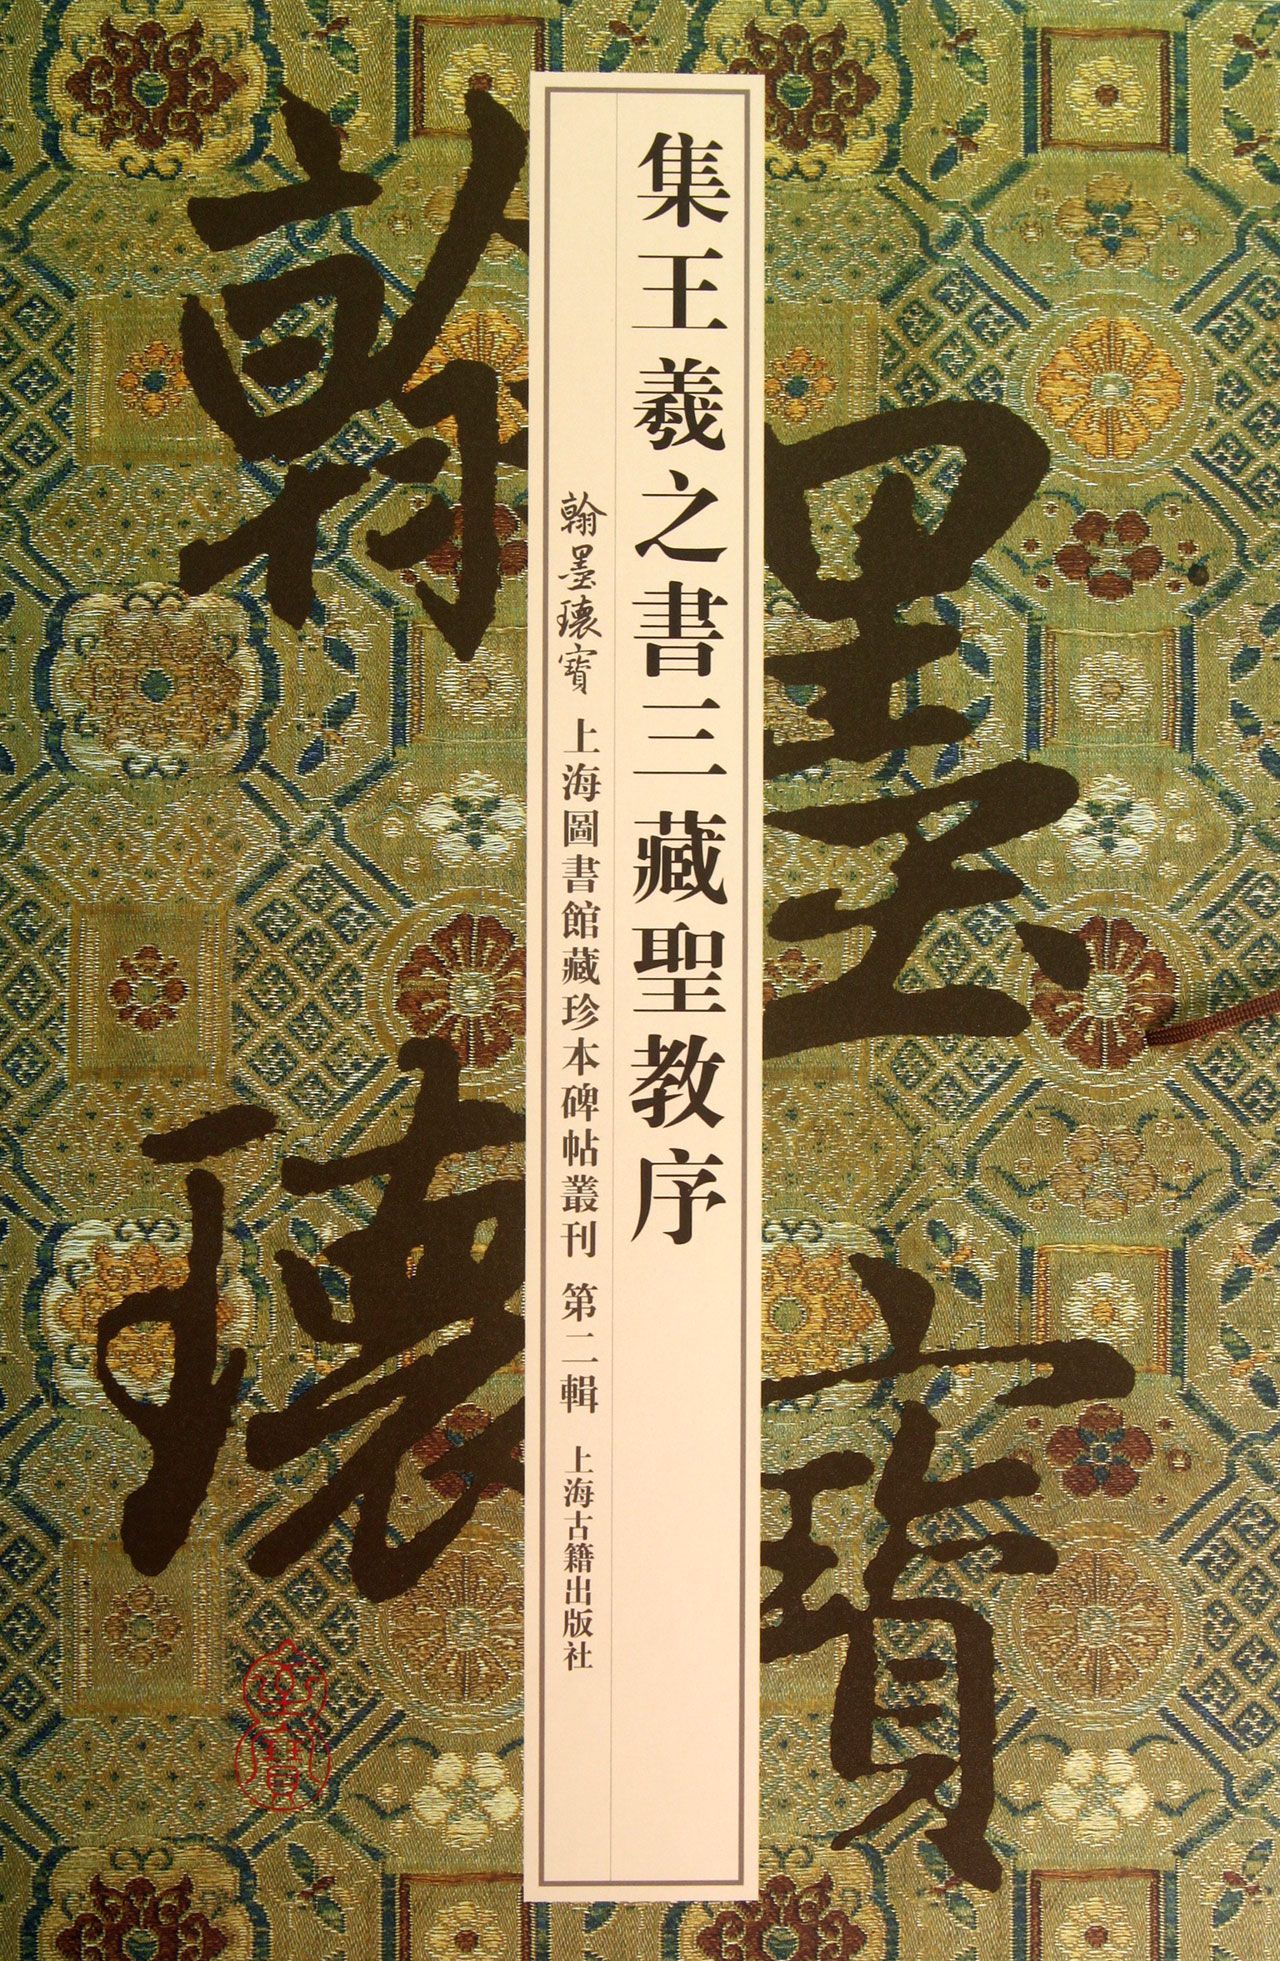 集王羲之書三藏聖教序
翰墨瓌寶 上海圖書館藏珍本碑帖叢刊 第二輯 上海古籍出版社
墨寶
翰瓌